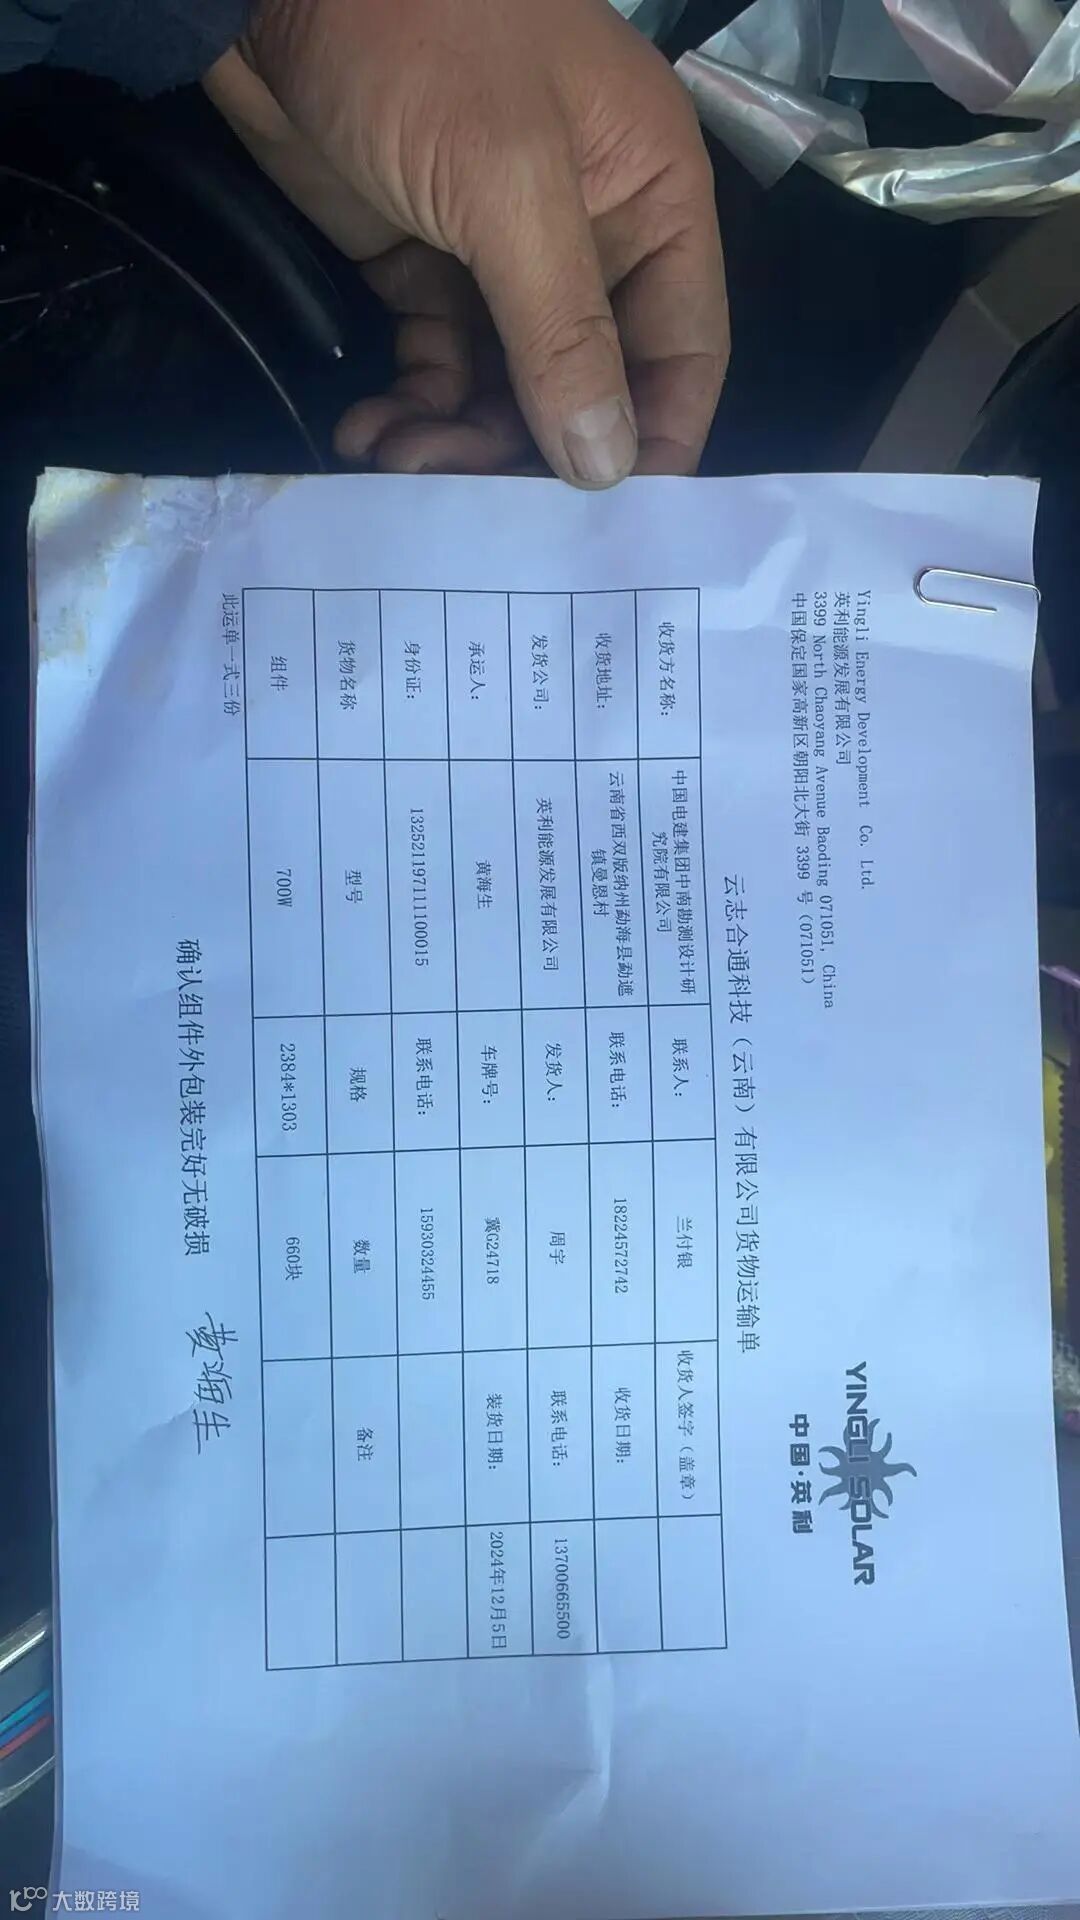 Yingli Energy Development Co. Ltd.
英利能源发展有限公司
3399 North Chaoyang Avenue Baoding 071051, China
中国保定国家高新区朝阳北大街 3399 号 (071051)
YINGLI SOLAR
中国·英利
云志合通科技（云南）有限公司货物运输单
收货方名称： 中国电建集团中南勘测设计研究院有限公司 联系人： 兰付银 收货人签字（盖章）
收货地址： 云南省西双版纳州勐海县勐遮镇曼恩村 联系电话： 18224572742 收货日期：
发货公司： 英利能源发展有限公司 发货人： 周宇 联系电话： 13700665500
承运人： 黄海生 车牌号： 冀G24718 装货日期： 2024年12月5日
身份证： 132521197111100015 联系电话： 15930324455
货物名称 型号 规格 数量 备注
组件 700W 2384*1303 660块
此运单一式三份
确认组件外包装完好无破损 黄海生
大数跨境